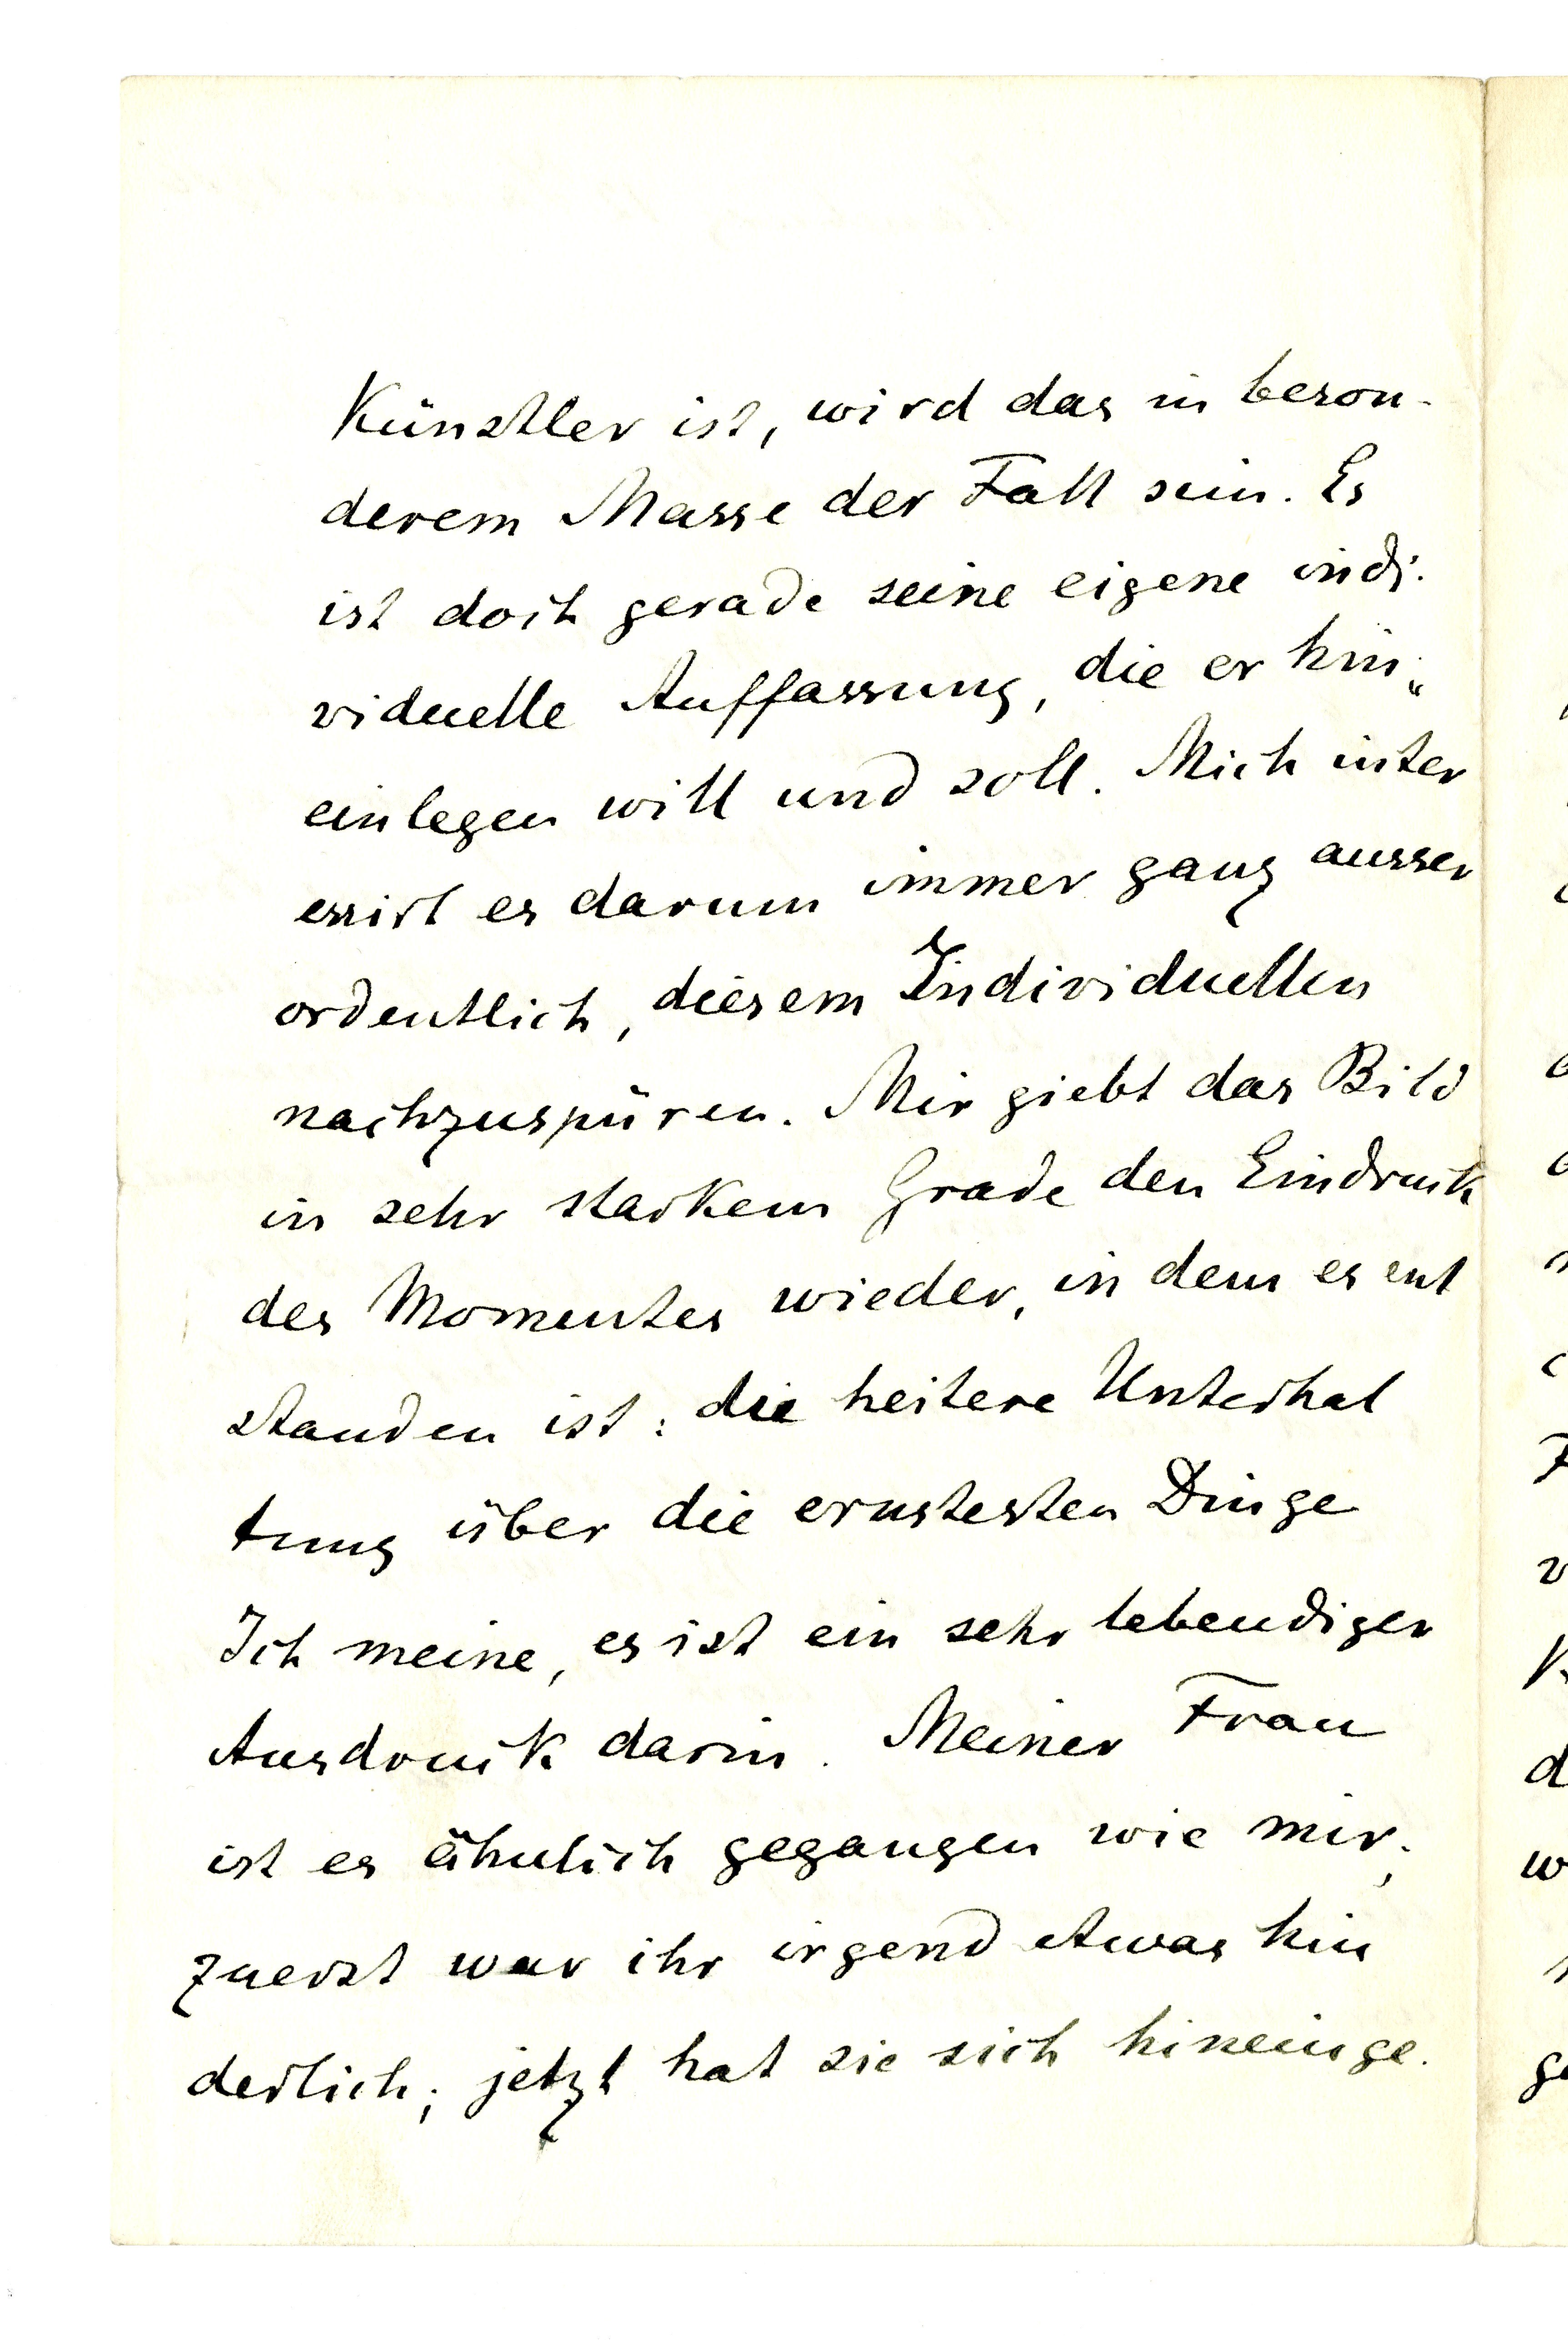 Künstler ist, wird das in beson-
derem Masse der Fall sein. Es
ist doch gerade seine eigene indi-
viduelle Auffassung, die er hin„
einlegen will und soll. Mich inter
essirt es darum immer ganz ausser
ordentlich, diesem Individuellen
nachzuspüren. Mir giebt das Bild
in sehr starkem Grade den Eindruck
des Momentes wieder, in dem es ent
standen ist: die heitere Unterhal
tung über die ernstesten Dinge
Ich meine, es ist ein sehr lebendiger
Ausdruck darin. Meiner Frau
ist es ähnlich gegangen wie mir;
zuerst war ihr irgend etwas hin
derlich; jetzt hat sie sich hineinge-